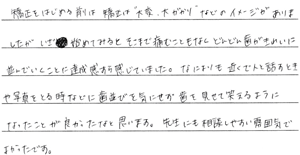 矯正をはじめる前は矯正は"大変、大がかり"などのイメージがありま
したが いざ始めてみると そこまで痛むこともなく どんどん歯がきれいに
並んでいくことに達成感すら感じていました。なによりも 近くで人と話すとき
や写真をとる時などに歯並びを気にせず歯を見せて笑えるように
なったことが良かったなと思います。先生にも相談しやすい雰囲気で
よかったです。